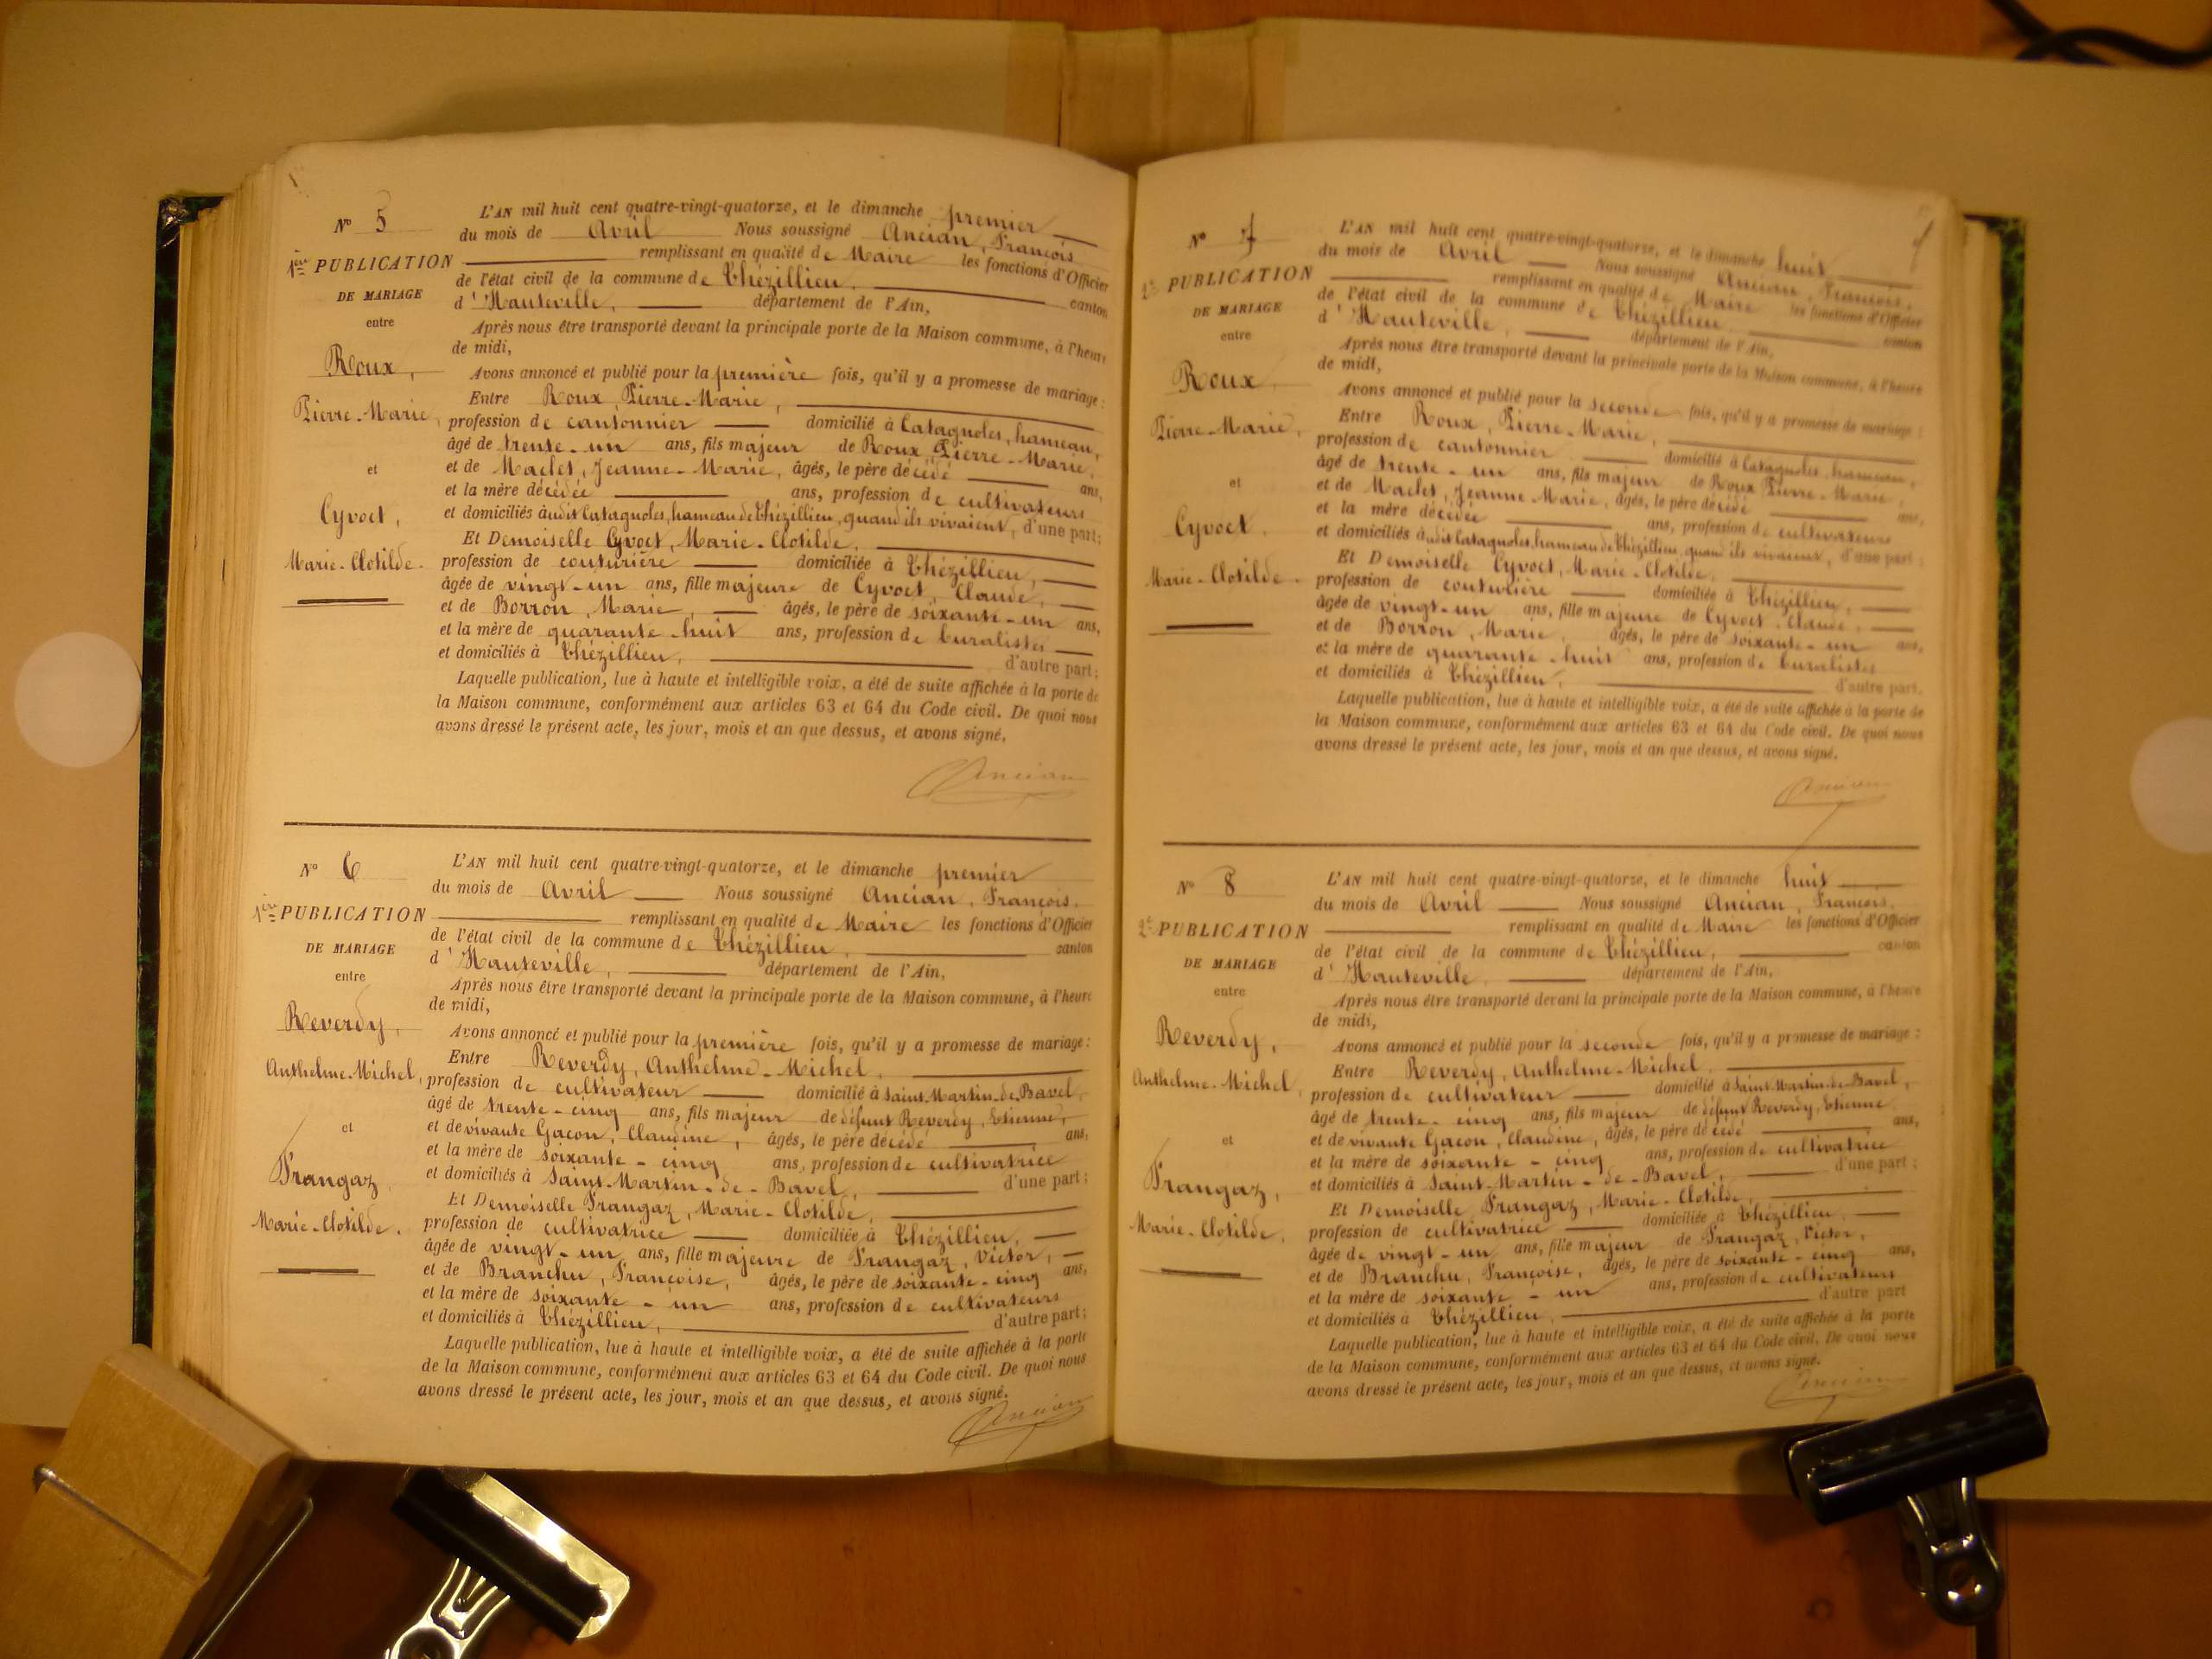 N° 5
1ère PUBLICATION
DE MARIAGE
entre
Roux,
Pierre-Marie,
et
Cyvoct,
Marie-Clotilde.
L'AN mil huit cent quatre-vingt-quatorze, et le dimanche premier
du mois de Avril Nous soussigné Ancian, François
remplissant en qualité de Maire les fonctions d'Officier
de l'état civil de la commune de Thézillieu, canton
d'Hauteville, département de l'Ain,
Après nous être transporté devant la principale porte de la Maison commune, à l'heure
de midi,
Avons annoncé et publié pour la première fois, qu'il y a promesse de mariage :
Entre Roux, Pierre-Marie,
profession de cantonnier domicilié à Catagnoles, hameau,
âgé de trente-un ans, fils majeur de Roux, Pierre-Marie,
et de Maclet, Jeanne-Marie, âgés, le père décédé ans,
et la mère décédée ans, profession de cultivateurs
et domiciliés àudit Catagnoles, hameau de Thézillieu, quand ils vivaient, d'une part;
Et Demoiselle Cyvoct, Marie-Clotilde,
profession de couturière domiciliée à Thézillieu,
âgée de vingt-un ans, fille majeure de Cyvoct, Claude,
et de Borron, Marie, âgés, le père de soixante-un ans,
et la mère de quarante-huit ans, profession de buralistes
et domiciliés à Thézillieu, d'autre part;
Laquelle publication, lue à haute et intelligible voix, a été de suite affichée à la porte de
la Maison commune, conformément aux articles 63 et 64 du Code civil. De quoi nous
avons dressé le présent acte, les jour, mois et an que dessus, et avons signé,
Ancian
N° 6
1ère PUBLICATION
DE MARIAGE
entre
Reverdy,
Anthelme-Michel,
et
Frangaz,
Marie-Clotilde.
L'AN mil huit cent quatre-vingt-quatorze, et le dimanche premier
du mois de Avril Nous soussigné Ancian, François.
remplissant en qualité de Maire les fonctions d'Officier
de l'état civil de la commune de Thézillieu, canton
d'Hauteville, département de l'Ain,
Après nous être transporté devant la principale porte de la Maison commune, à l'heure
de midi,
Avons annoncé et publié pour la première fois, qu'il y a promesse de mariage :
Entre Reverdy, Anthelme-Michel,
profession de cultivateur domicilié à Saint-Martin-de-Bavel,
âgé de trente-cinq ans, fils majeur de défunt Reverdy, Etienne,
et de vivante Gacon, Claudine, âgés, le père décédé ans,
et la mère de soixante-cinq ans, profession de cultivatrice
et domiciliés à Saint-Martin-de-Bavel, d'une part;
Et Demoiselle Frangaz, Marie-Clotilde,
profession de cultivatrice domiciliée à Thézillieu,
âgée de vingt-un ans, fille majeure de Frangaz, Victor,
et de Branchu, Françoise, âgés, le père de soixante-cinq ans,
et la mère de soixante-un ans, profession de cultivateurs
et domiciliés à Thézillieu, d'autre part;
Laquelle publication, lue à haute et intelligible voix, a été de suite affichée à la porte
de la Maison commune, conformément aux articles 63 et 64 du Code civil. De quoi nous
avons dressé le présent acte, les jour, mois et an que dessus, et avons signé.
Ancian
N° 7
2e PUBLICATION
DE MARIAGE
entre
Roux,
Pierre-Marie,
et
Cyvoct,
Marie-Clotilde.
L'AN mil huit cent quatre-vingt-quatorze, et le dimanche huit
du mois de Avril Nous soussigné Ancian, François,
remplissant en qualité de Maire les fonctions d'Officier
de l'état civil de la commune de Thézillieu canton
d'Hauteville, département de l'Ain,
Après nous être transporté devant la principale porte de la Maison commune, à l'heure
de midi,
Avons annoncé et publié pour la seconde fois, qu'il y a promesse de mariage :
Entre Roux, Pierre-Marie,
profession de cantonnier domicilié à Catagnoles, hameau,
âgé de trente-un ans, fils majeur de Roux Pierre-Marie,
et de Maclet, Jeanne-Marie, âgés, le père décédé ans,
et la mère décédée ans, profession de cultivateurs
et domiciliés àudit Catagnoles, hameau de Thézillieu, quand ils vivaient, d'une part;
Et Demoiselle Cyvoct, Marie-Clotilde,
profession de couturière domiciliée à Thézillieu,
âgée de vingt-un ans, fille majeure de Cyvoct, Claude,
et de Borron, Marie, âgés, le père de soixante-un ans,
et la mère de quarante-huit ans, profession de buralistes
et domiciliés à Thézillieu, d'autre part.
Laquelle publication, lue à haute et intelligible voix, a été de suite affichée à la porte de
la Maison commune, conformément aux articles 63 et 64 du Code civil. De quoi nous
avons dressé le présent acte, les jour, mois et an que dessus, et avons signé.
Ancian
N° 8
2e PUBLICATION
DE MARIAGE
entre
Reverdy,
Anthelme-Michel,
et
Frangaz,
Marie-Clotilde,
L'AN mil huit cent quatre-vingt-quatorze, et le dimanche huit
du mois de Avril Nous soussigné Ancian, François.
remplissant en qualité de Maire les fonctions d'Officier
de l'état civil de la commune de Thézillieu, canton
d'Hauteville, département de l'Ain,
Après nous être transporté devant la principale porte de la Maison commune, à l'heure
de midi,
Avons annoncé et publié pour la seconde fois, qu'il y a promesse de mariage :
Entre Reverdy, Anthelme-Michel,
profession de cultivateur domicilié à Saint-Martin-de-Bavel,
âgé de trente-cinq ans, fils majeur de défunt Reverdy, Etienne
et de vivante Gacon, Claudine, âgés, le père décédé ans,
et la mère de soixante-cinq ans, profession de cultivatrice
et domiciliés à Saint-Martin-de-Bavel, d'une part;
Et Demoiselle Frangaz, Marie-Clotilde,
profession de cultivatrice domiciliée à Thézillieu,
âgée de vingt-un ans, fille majeur de Frangaz, Victor,
et de Branchu, Françoise, âgés, le père de soixante-cinq ans,
et la mère de soixante-un ans, profession de cultivateurs
et domiciliés à Thézillieu, d'autre part
Laquelle publication, lue à haute et intelligible voix, a été de suite affichée à la porte
de la Maison commune, conformément aux articles 63 et 64 du Code civil. De quoi nous
avons dressé le présent acte, les jour, mois et an que dessus, et avons signé.
Ancian